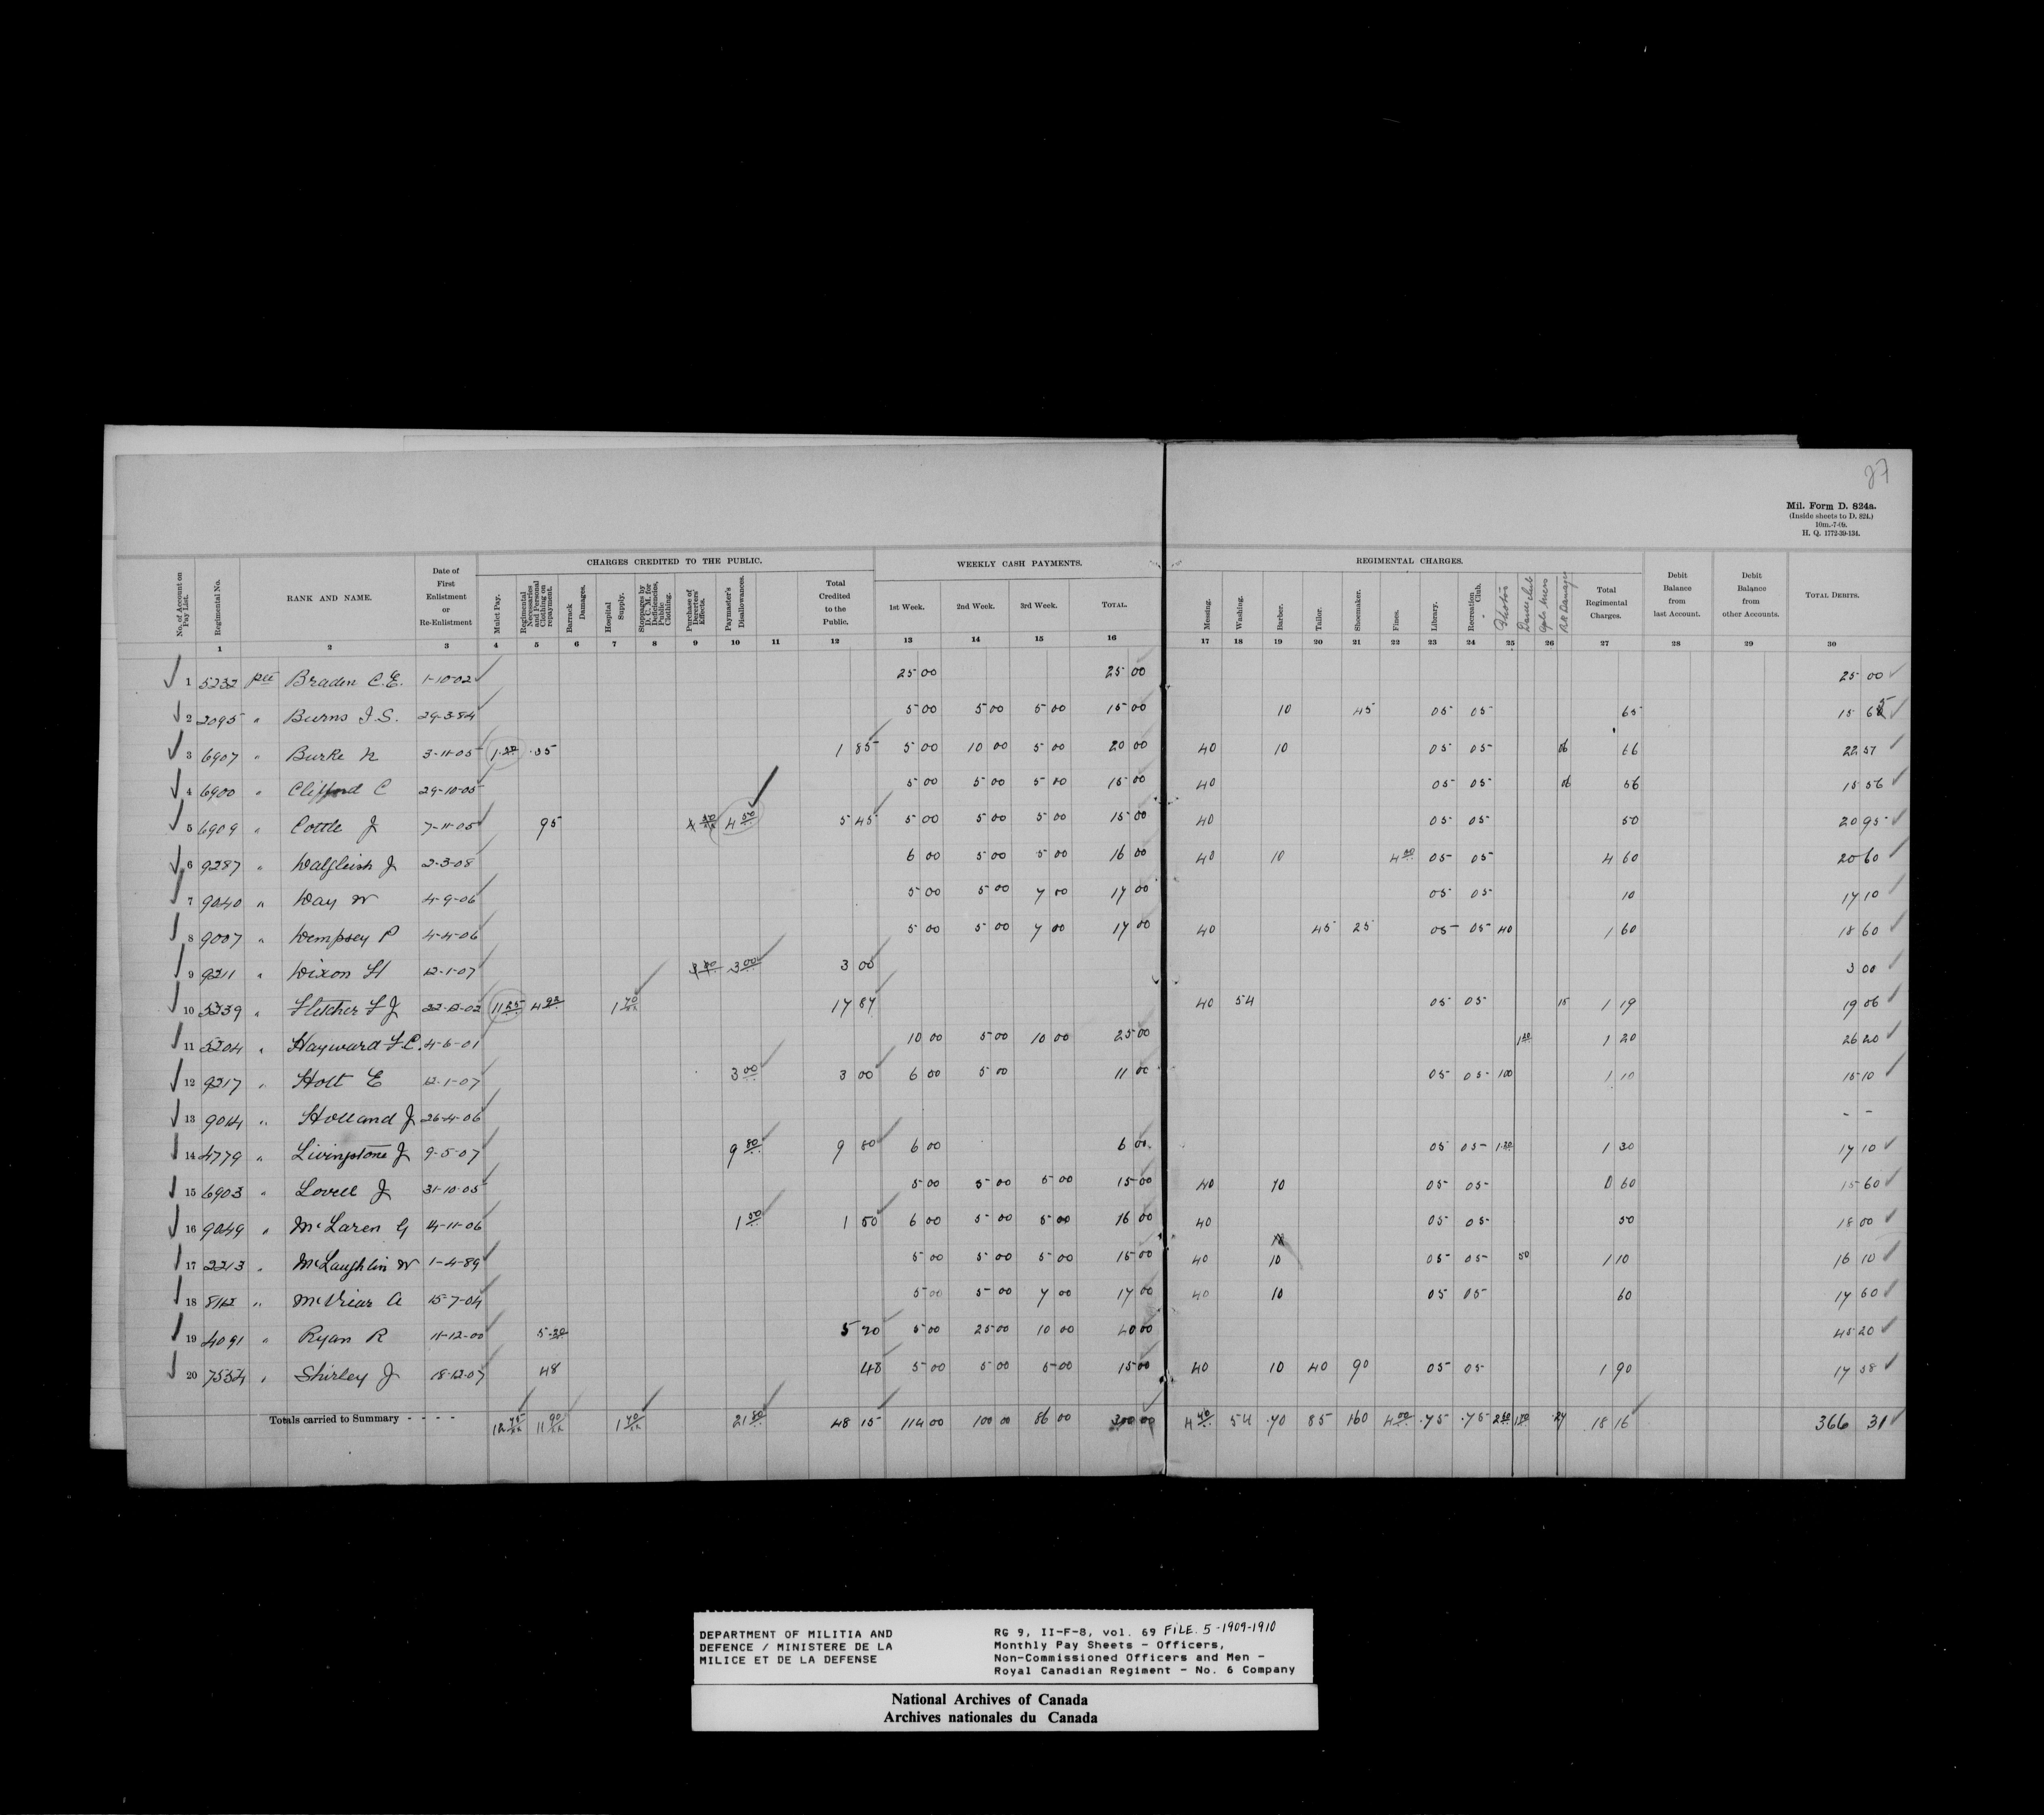 27
Mil. Form D. 824a.
(Inside sheets to D. 824.)
10m.-7-09.
H. Q. 1772-39-134.
CHARGES CREDITED TO THE PUBLIC. WEEKLY CASH PAYMENTS. REGIMENTAL CHARGES.
No. of Account on Pay List. Regimental No. RANK AND NAME. Date of First Enlistment or Re-Enlistment Mulct Pay. Regimental Necessaries and Personal Clothing on repayment. Barrack Damages. Hospital Supply. Stoppages by D. C. M. for Deficiencies, Public Clothing. Purchase of Deserters' Effects. Paymaster's Disallowances. Total Credited to the Public. 1st Week. 2nd Week. 3rd Week. TOTAL. Messing. Washing. Barber. Tailor. Shoemaker. Fines. Library. Recreation Club. Photos Dance club Damages Total Regimental Charges. Debit Balance from last Account. Debit Balance from other Accounts. TOTAL DEBITS.
1 2 3 4 5 6 7 8 9 10 11 12 13 14 15 16 17 18 19 20 21 22 23 24 25 26 27 28 29 30
1 5232 Pte Braden C.E. 1-10-02 25 00 25 00 25 00
2 2095 " Burns J.S. 29-3-84 5 00 5 00 5 00 15 00 10 45 05 05 65 15 65
3 6907 " Burke N 3-11-05 1.50 .35 1 85 5 00 10 00 5 00 20 00 40 10 05 05 06 66 22 51
4 6900 " Clifford C 29-10-05 5 00 5 00 5 00 15 00 40 05 05 06 56 15 56
5 6909 " Cottle J 7-11-05 95 4 50 4 50 5 45 5 00 5 00 5 00 15 00 40 05 05 50 20 95
6 9287 " Dalgleish J 2-3-08 6 00 5 00 5 00 16 00 40 10 4 00 05 05 4 60 20 60
7 9040 " Day W 4-9-06 5 00 5 00 7 00 17 00 05 05 10 17 10
8 9007 " Dempsey P 4-4-06 5 00 5 00 7 00 17 00 40 45 25 05 05 40 1 60 18 60
9 9211 " Dixon H 12-1-07 3 00 3 00 3 00 3 00
10 5239 " Fletcher F J 22-12-02 11 25 4 92 1 70 17 87 40 54 05 05 15 1 19 19 06
11 5204 " Hayward F.C. 4-6-01 10 00 5 00 10 00 25 00 1 20 1 20 26 20
12 9217 " Holt E 12-1-07 3 00 3 00 6 00 5 00 11 00 05 05 1 00 1 10 15 10
13 9014 " Holland J 26-4-06 - -
14 4779 " Livingstone J 9-5-07 9 80 9 80 6 00 6 00 05 05 1.20 1 30 17 10
15 6903 " Lovell J 31-10-05 5 00 5 00 5 00 15 00 40 10 05 05 60 15 60
16 9049 " McLaren G 14-11-06 1 50 1 50 6 00 5 00 5 00 16 00 40 05 05 50 18 00
17 2213 " McLaughlin W 1-4-89 5 00 5 00 5 00 15 00 40 10 05 05 50 1 10 16 10
18 8112 " McVicar A 15-7-04 5 00 5 00 7 00 17 00 40 10 05 05 60 17 60
19 4091 " Ryan R 11-12-00 5.20 5 20 5 00 25 00 10 00 40 00 45 20
20 7554 " Shirley J 18-12-07 48 48 5 00 5 00 5 00 15 00 40 10 40 90 05 05 1 90 17 38
Totals carried to Summary - - - - 12 75 11 90 1 70 21 80 48 15 114 00 100 00 86 00 300 00 4 40 54 .70 85 1 60 4 00 .75 .75 2 60 1 70 .27 18 16 366 31
DEPARTMENT OF MILITIA AND DEFENCE / MINISTERE DE LA MILICE ET DE LA DEFENSE
RG 9, II-F-8, vol. 69 FILE. 5-1909-1910
Monthly Pay Sheets - Officers,
Non-Commissioned Officers and Men -
Royal Canadian Regiment - No. 6 Company
National Archives of Canada
Archives nationales du Canada